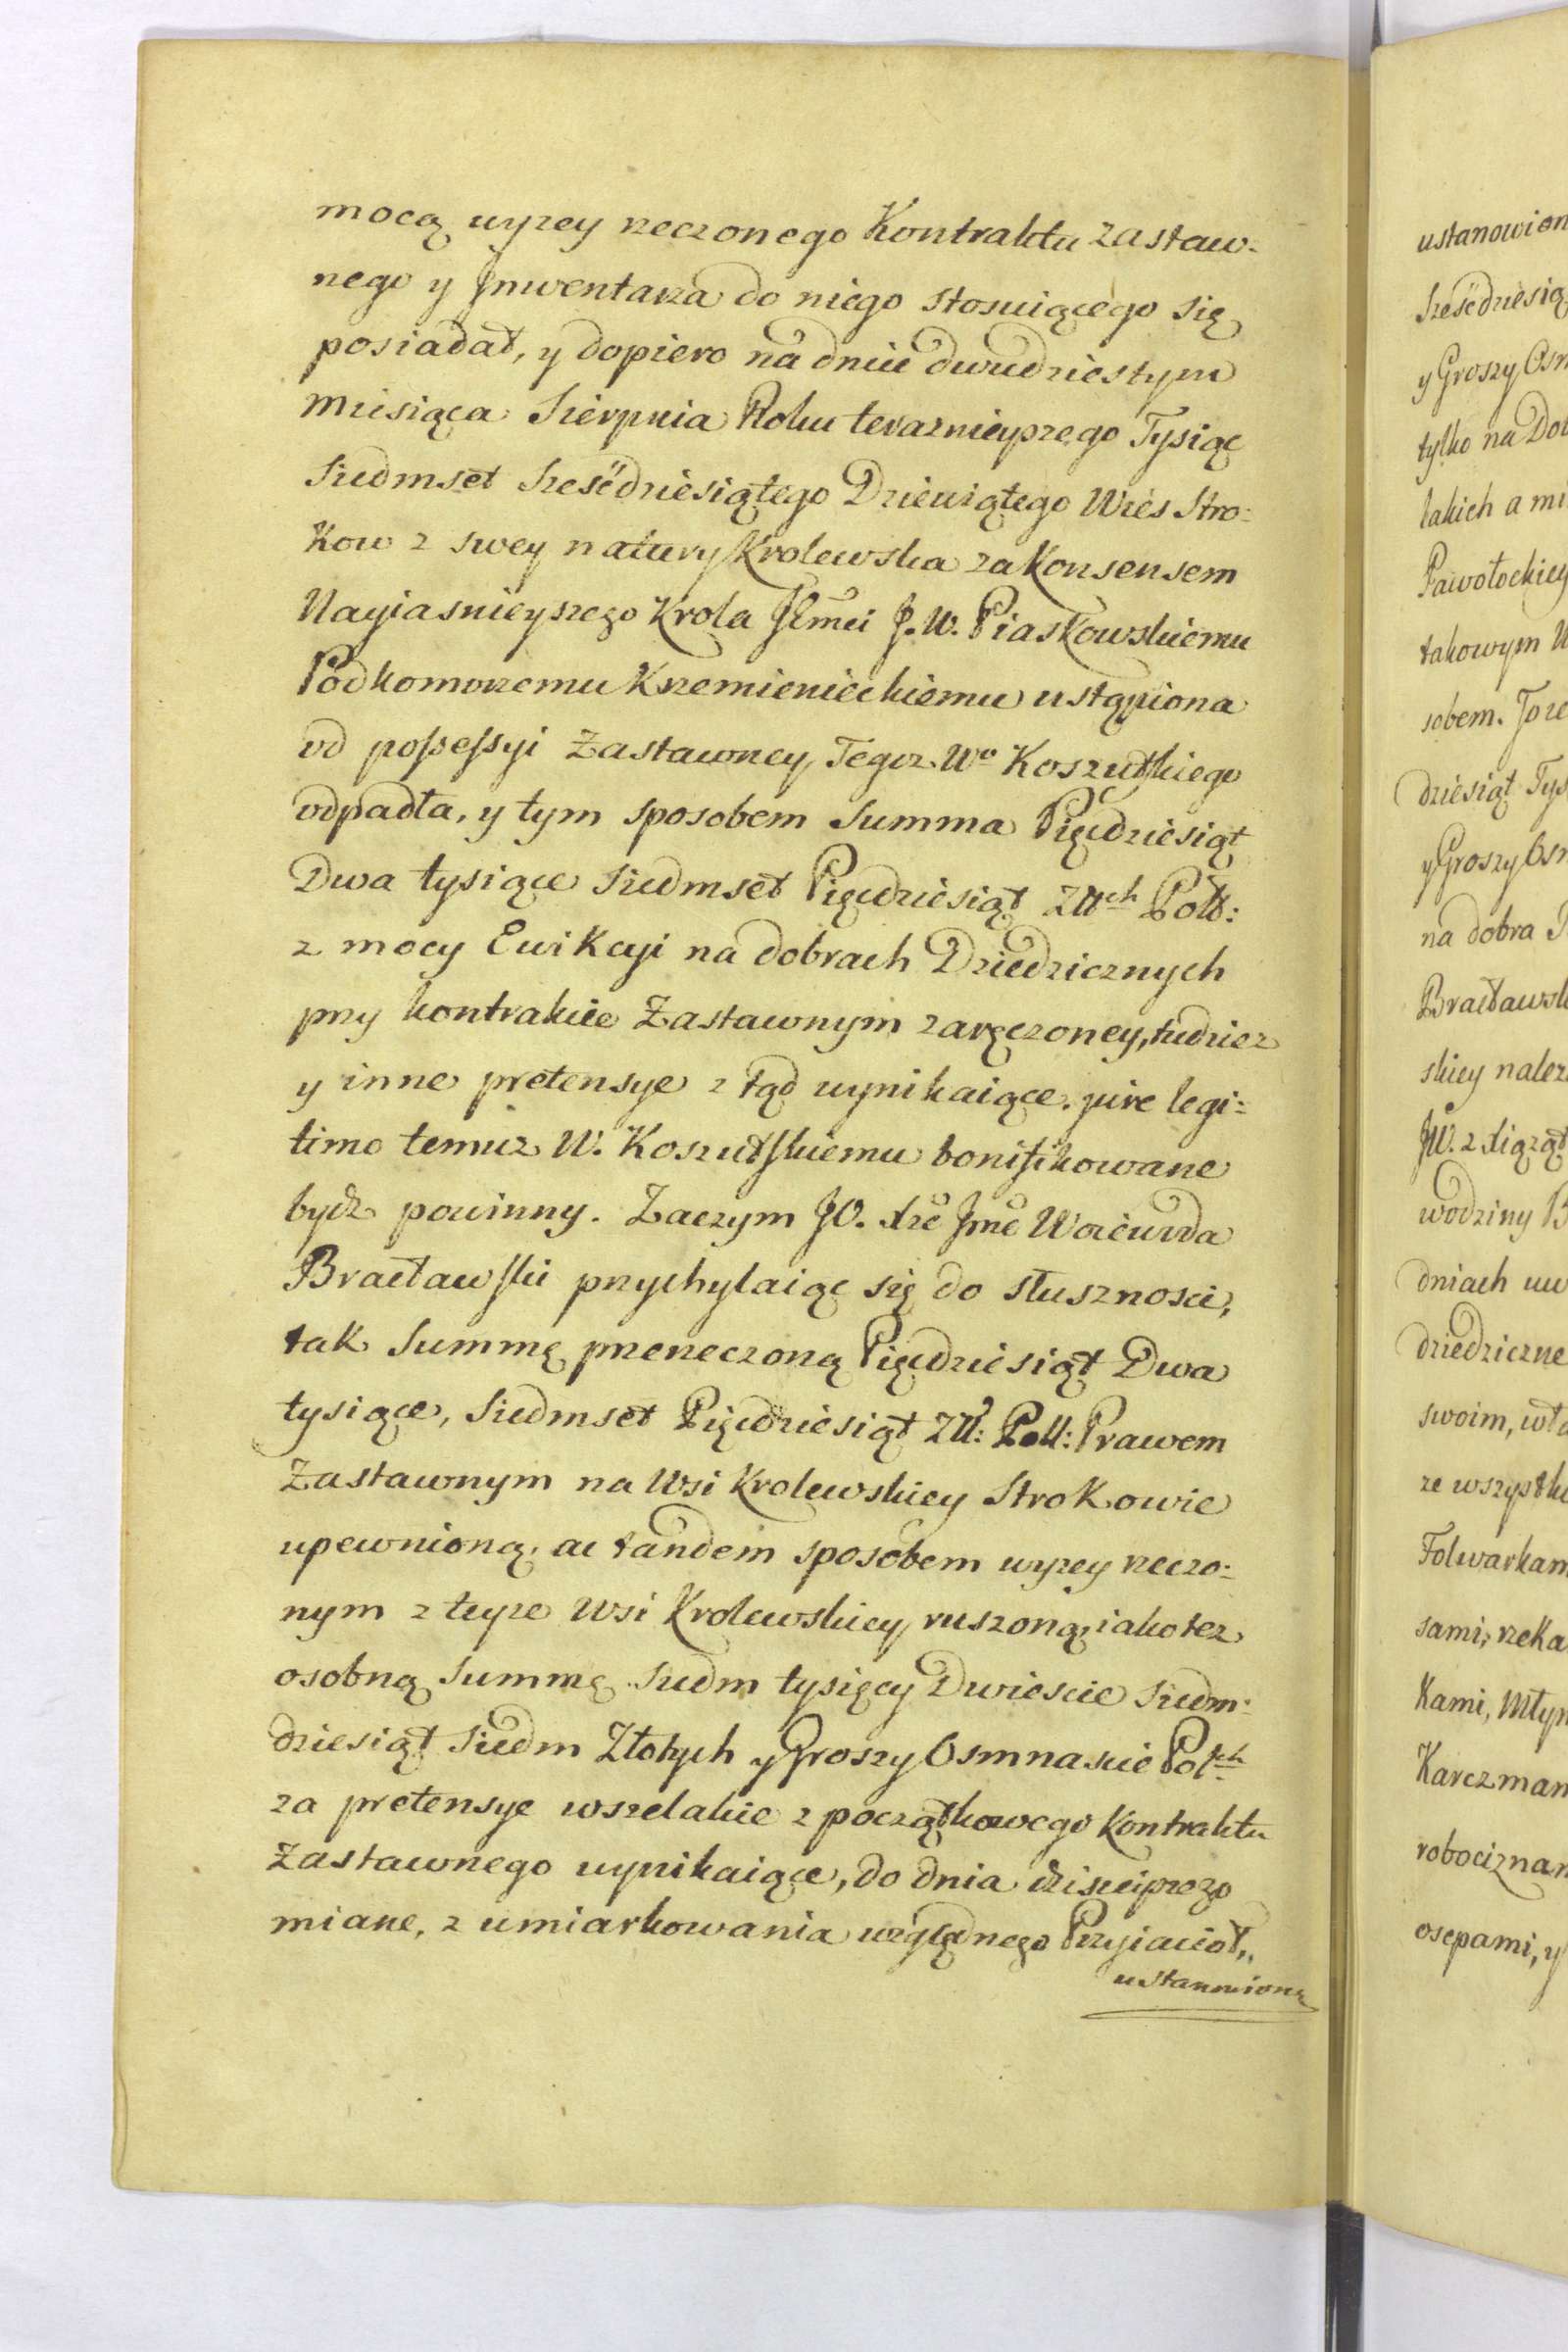 mocą wyzey rzeczonego Kontraktu zastaw-
nego y Jnwentarza do niego stosuiącego się
posiadał, y dopiero na dniu dwudziestym
Miesiąca Sierpnia Roku teraznieyszego Tysiąc
Siedmset Sześćdziesiątego Dziewiątego Wies Stro:
Kow z swey natury Krolewska za Konsensem
Nayiasnieyszego Krola JEmci J. W. Piaskowskiemu
Podkomorzemu Krzemienieckiemu ustąpiona
od possessyi Zastawney Tegoz Wo Koszutskiego
odpadła, y tym sposobem Summa Pięcdziesiąt
Dwa tysiące Siedmset Pięcdziesiąt Złłch Poll:
z mocy Ewikcyi na dobrach Dziedzicznych
przy kontrakcie Zastawnym zaręczoney, tudziez
y inne pretensye z tąd wynikaiące. jure legi:
timo temuz W. Koszutskiemu bonifikowane
bydz powinny. Zaczym JO. Xże Jmć Woiewoda
Bracławski przychylaiąc się do słusznosci,
tak Summę przerzeczoną Pięcdziesiąt Dwa
tysiące, Siedmset Pięcdziesiąt Złł: Poll: Prawem
Zastawnym na Wsi Krolewskiey Strokowie
upewnioną, ac tandem sposobem wyzey rzeczo:
nym z teyze Wsi Krolewskiey ruszoną, iako tez
osobną Summę Siedm tysięcy Dwiescie Siedm:
dziesiąt Siedm Złotych y Groszy Osmnascie Polch
za pretensye wszelakie z początkowego Kontraktu
Zastawnego wynikaiące, do dnia dzisieyszego
miane, z umiarkowania względnego Przyiacioł,
ustanowioną
ustanowion
Sześćdziesią
y Groszy Osm
tylko na Dob
lakich a mi
Pawołockiey
takowym W
sobem. Joze
dziesiąt Tys
y Groszy Osm
na dobra P
Bracławsk
skiey nalez
JW. z Xiąząt
wodziny B
dniach uw
dziedziczne
swoim, wła
ze wszystki
Folwarkam
sami, rzeka
Kami, Młyn
Karczmam
robociznam
osepami, y